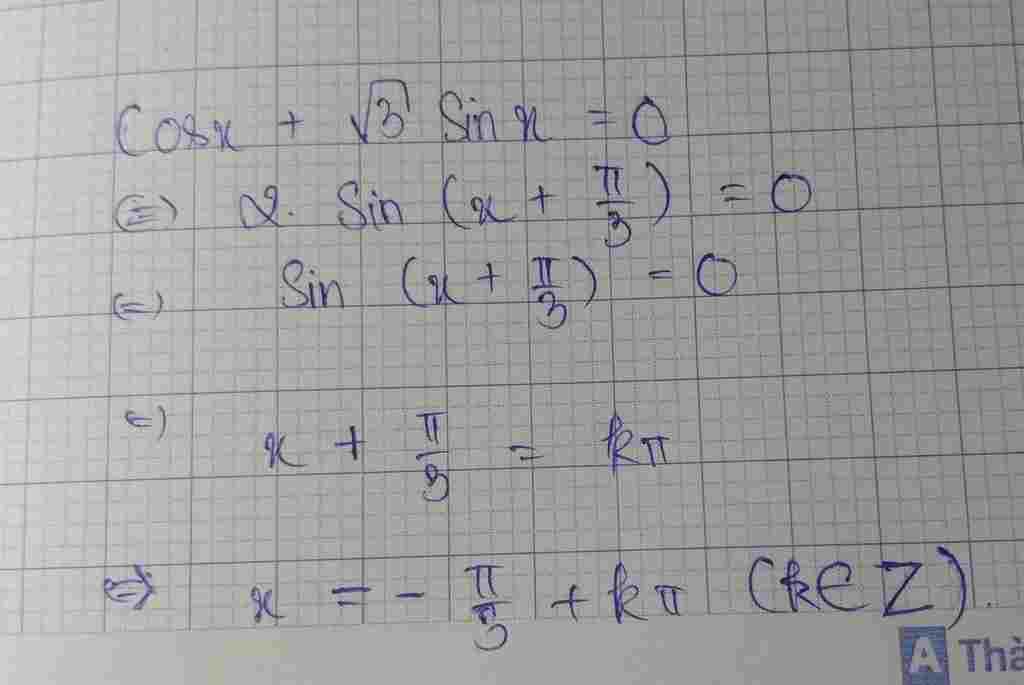 Cosx + √3 Sin x = 0
(=) 2. Sin (x + π/3) = 0
(=) Sin (x + π/3) = 0
=) x + π/3 = kπ
<=> x = - π/3 + kπ (k∈Z).
A Thà